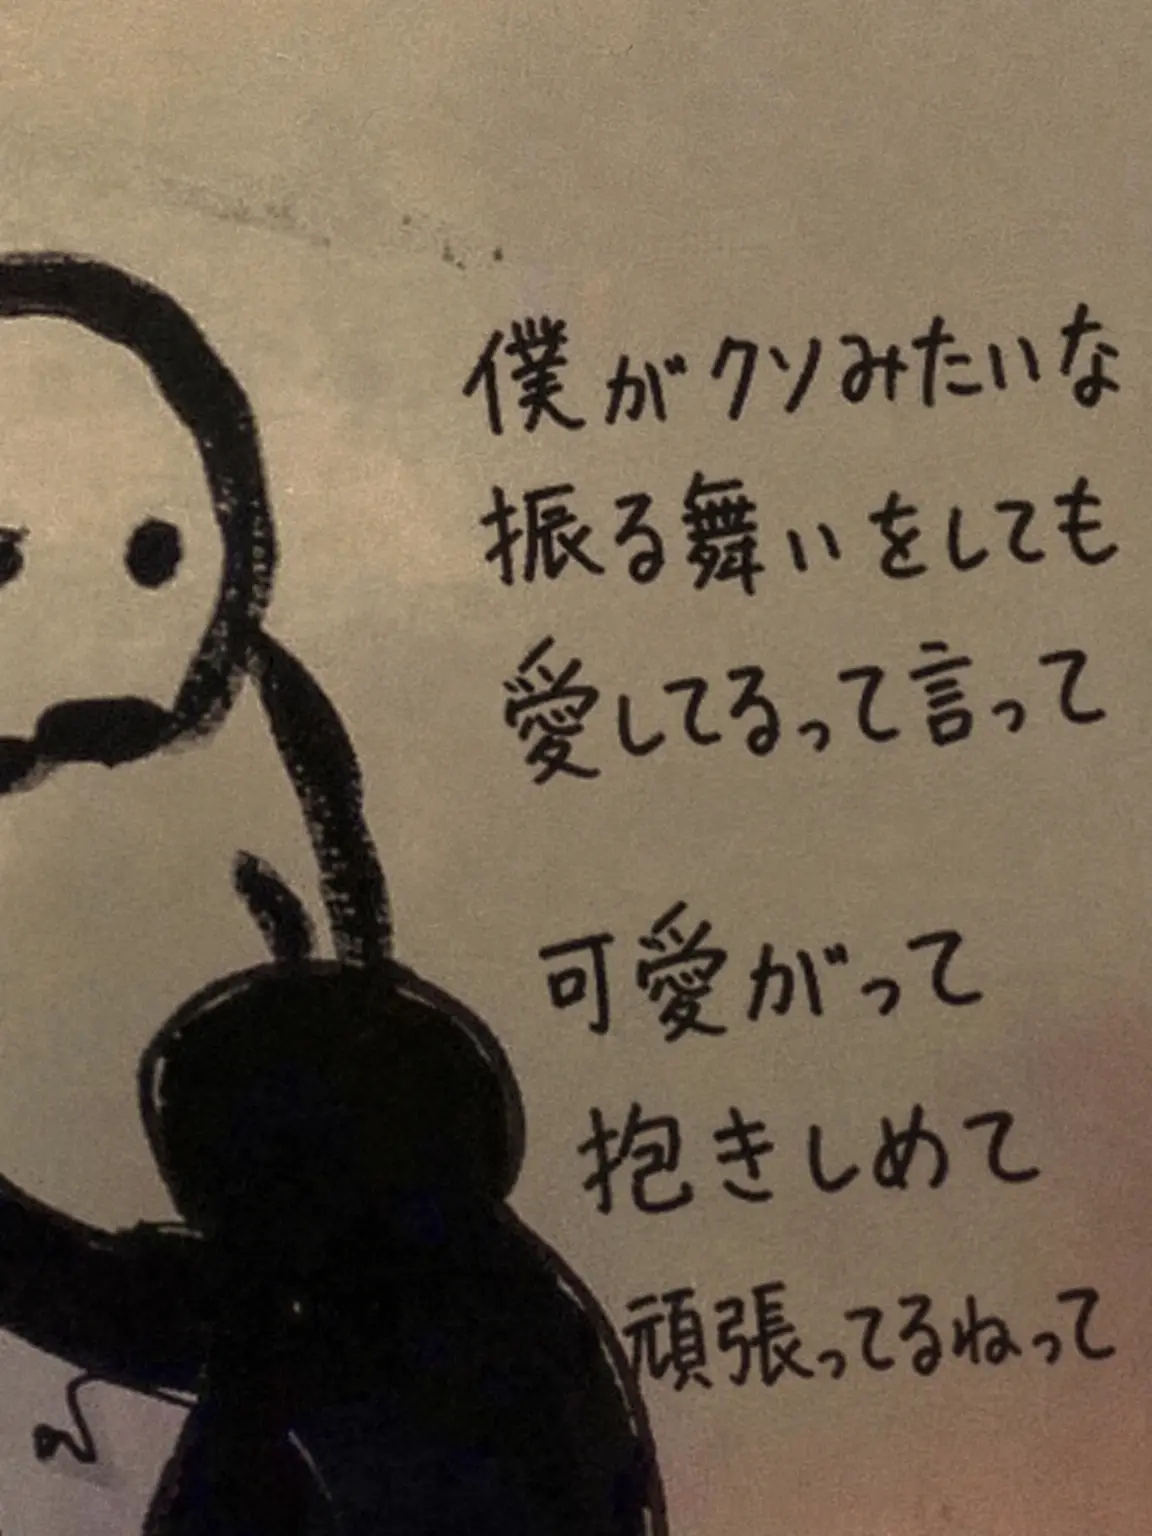 僕がクソみたいな
振る舞いをしても
愛してるって言って
可愛がって
抱きしめて
頑張ってるねって